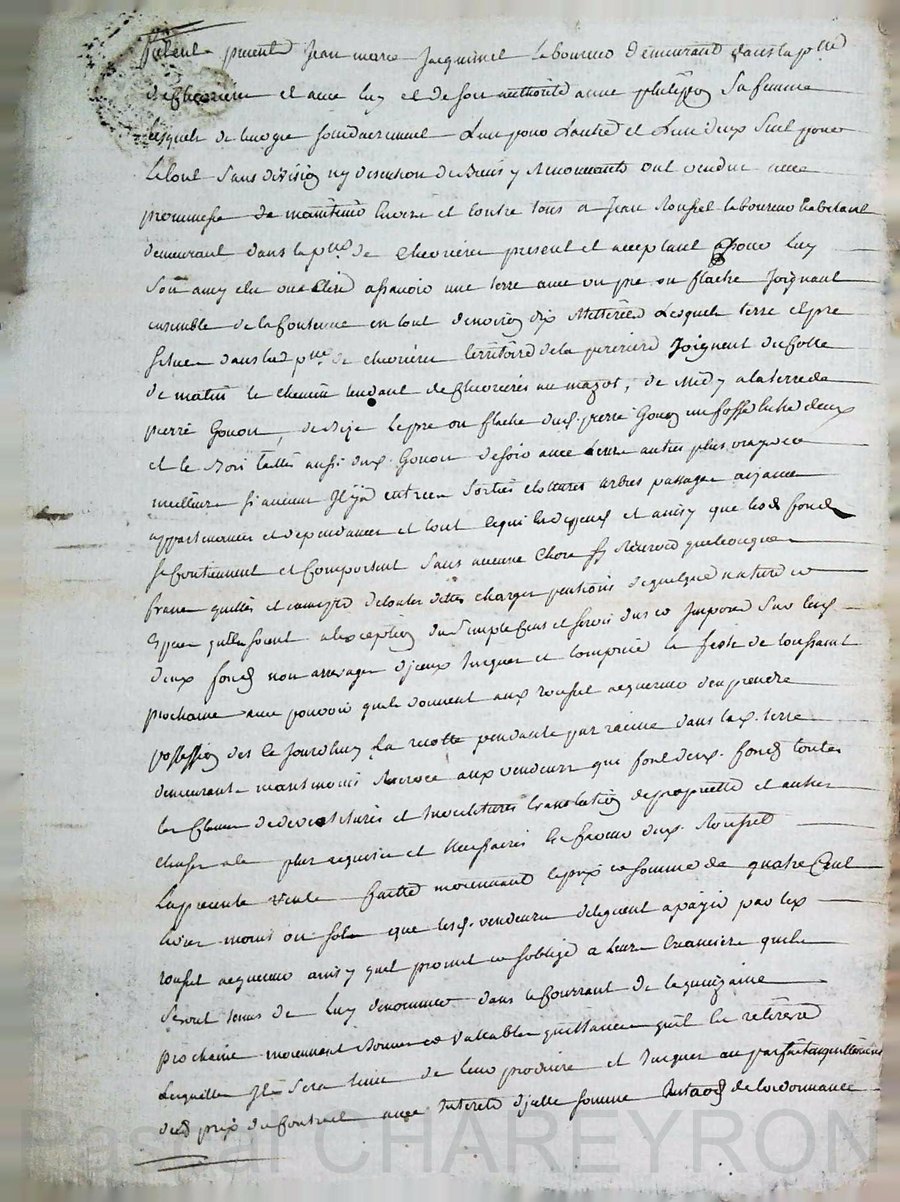 furent présents Jean marc Jacquemet Laboureur demeurant dans la p.sse
de Chevrieres et avec luy et de son authorité anne philippon Sa femme
Lesquels de leur gre solidairement L'un pour L'autre et L'un deux Seul pour
Le tout Sans division ny discution de Biens y Renonceants ont vendu avec
prommesse de maintenir Envers et contre tous a Jean Roussel laboureur habitant
demeurant dans la p.sse de Chevrieres present et acceptant pour Luy
Son amy elu ou a Elire assavoir une terre avec un pre ou flache Joignant
ensemble de la Contenue en tout denviron dix Metterées Lesquels terre et pre
Situes dans lad p.sse de chevrieres territoire de la Joignent
de matin le chemin tendant de Chevrieres au mazot, de Midy a la terre de
pierre Gonon, de bize Le pre ou flache dud. pierre Gonon un fossé entre deux
et le Bois taillis aussi dud. Gonon de soir avec Leurs autres plus vrays et
meilleurs Si aucun Il y a entrées Sorties clotures arbres passages aizances
appartenances et dependances et tout ainsy que lesd fonds
Se Contiennent et Comportent Sans aucune Chose Reserver quelconque
franc quittes et de toutes dettes charges pentions de quelque nature et
Espece quelles soient a lexception du Simple Cens et servis dus et Imposes Sur lesd
deux fonds non arrerages d'jceux Jusques et Compris la feste de toussaint
prochaine avec pouvoir quils donnent aud roussel acquereur den prendre
possession des ce Jourdhuy La recolte pendante par racine dans lad. terre
demeurant neantmoins Reservée aux vendeurs qui font desd. fonds toutes
les Clauses de devestitures et Investitures translation de proprietté et autres
clauses a ce plus requises et Necessaires En faveur dud. Roussel
La presente vente faitte moyennant le prix et somme de quatre Cent
livres moins un sol que lesd. vendeurs deleguent a payer par led
roussel acquereur ainsy quil promet et soblige a Leurs Creanciers quils
Seront tenus de Luy denommer dans le Courrant de la quinzaine
prochaine moyennant Bonnes et Vallables quittances quil En retirera
Lesquelles Il Sera tenu de Leur produire et Jusques au parfait acquittement
dud prix du Contract avec Interets d'jcelle Somme de Lordonnance
Pascal CHAREYRON